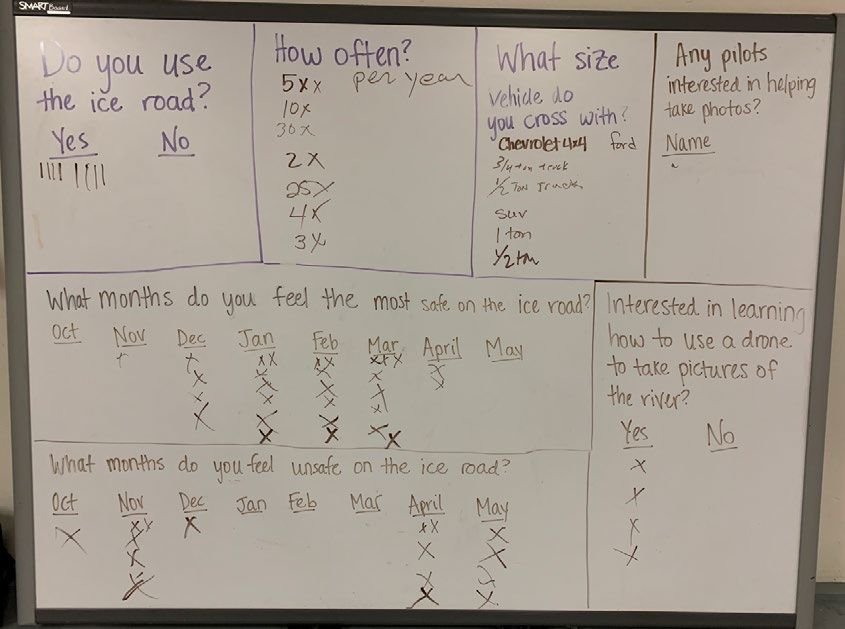 SMART Board
Do you use
the ice road?
Yes No
How often?
5xx per year
10x
30x
2x
25x
4x
3x
What size
vehicle do
you cross with?
Chevrolet 4x4 ford
3/4 ton truck
1/2 Ton Truck
suv
1 ton
1/2 ton
Any pilots
interested in helping
take photos?
Name
What months do you feel the most safe on the ice road?
Oct Nov Dec Jan Feb Mar April May
Interested in learning
how to use a drone
to take pictures of
the river?
Yes No
X
X
X
X
What months do you feel unsafe on the ice road?
Oct Nov Dec Jan Feb Mar April May